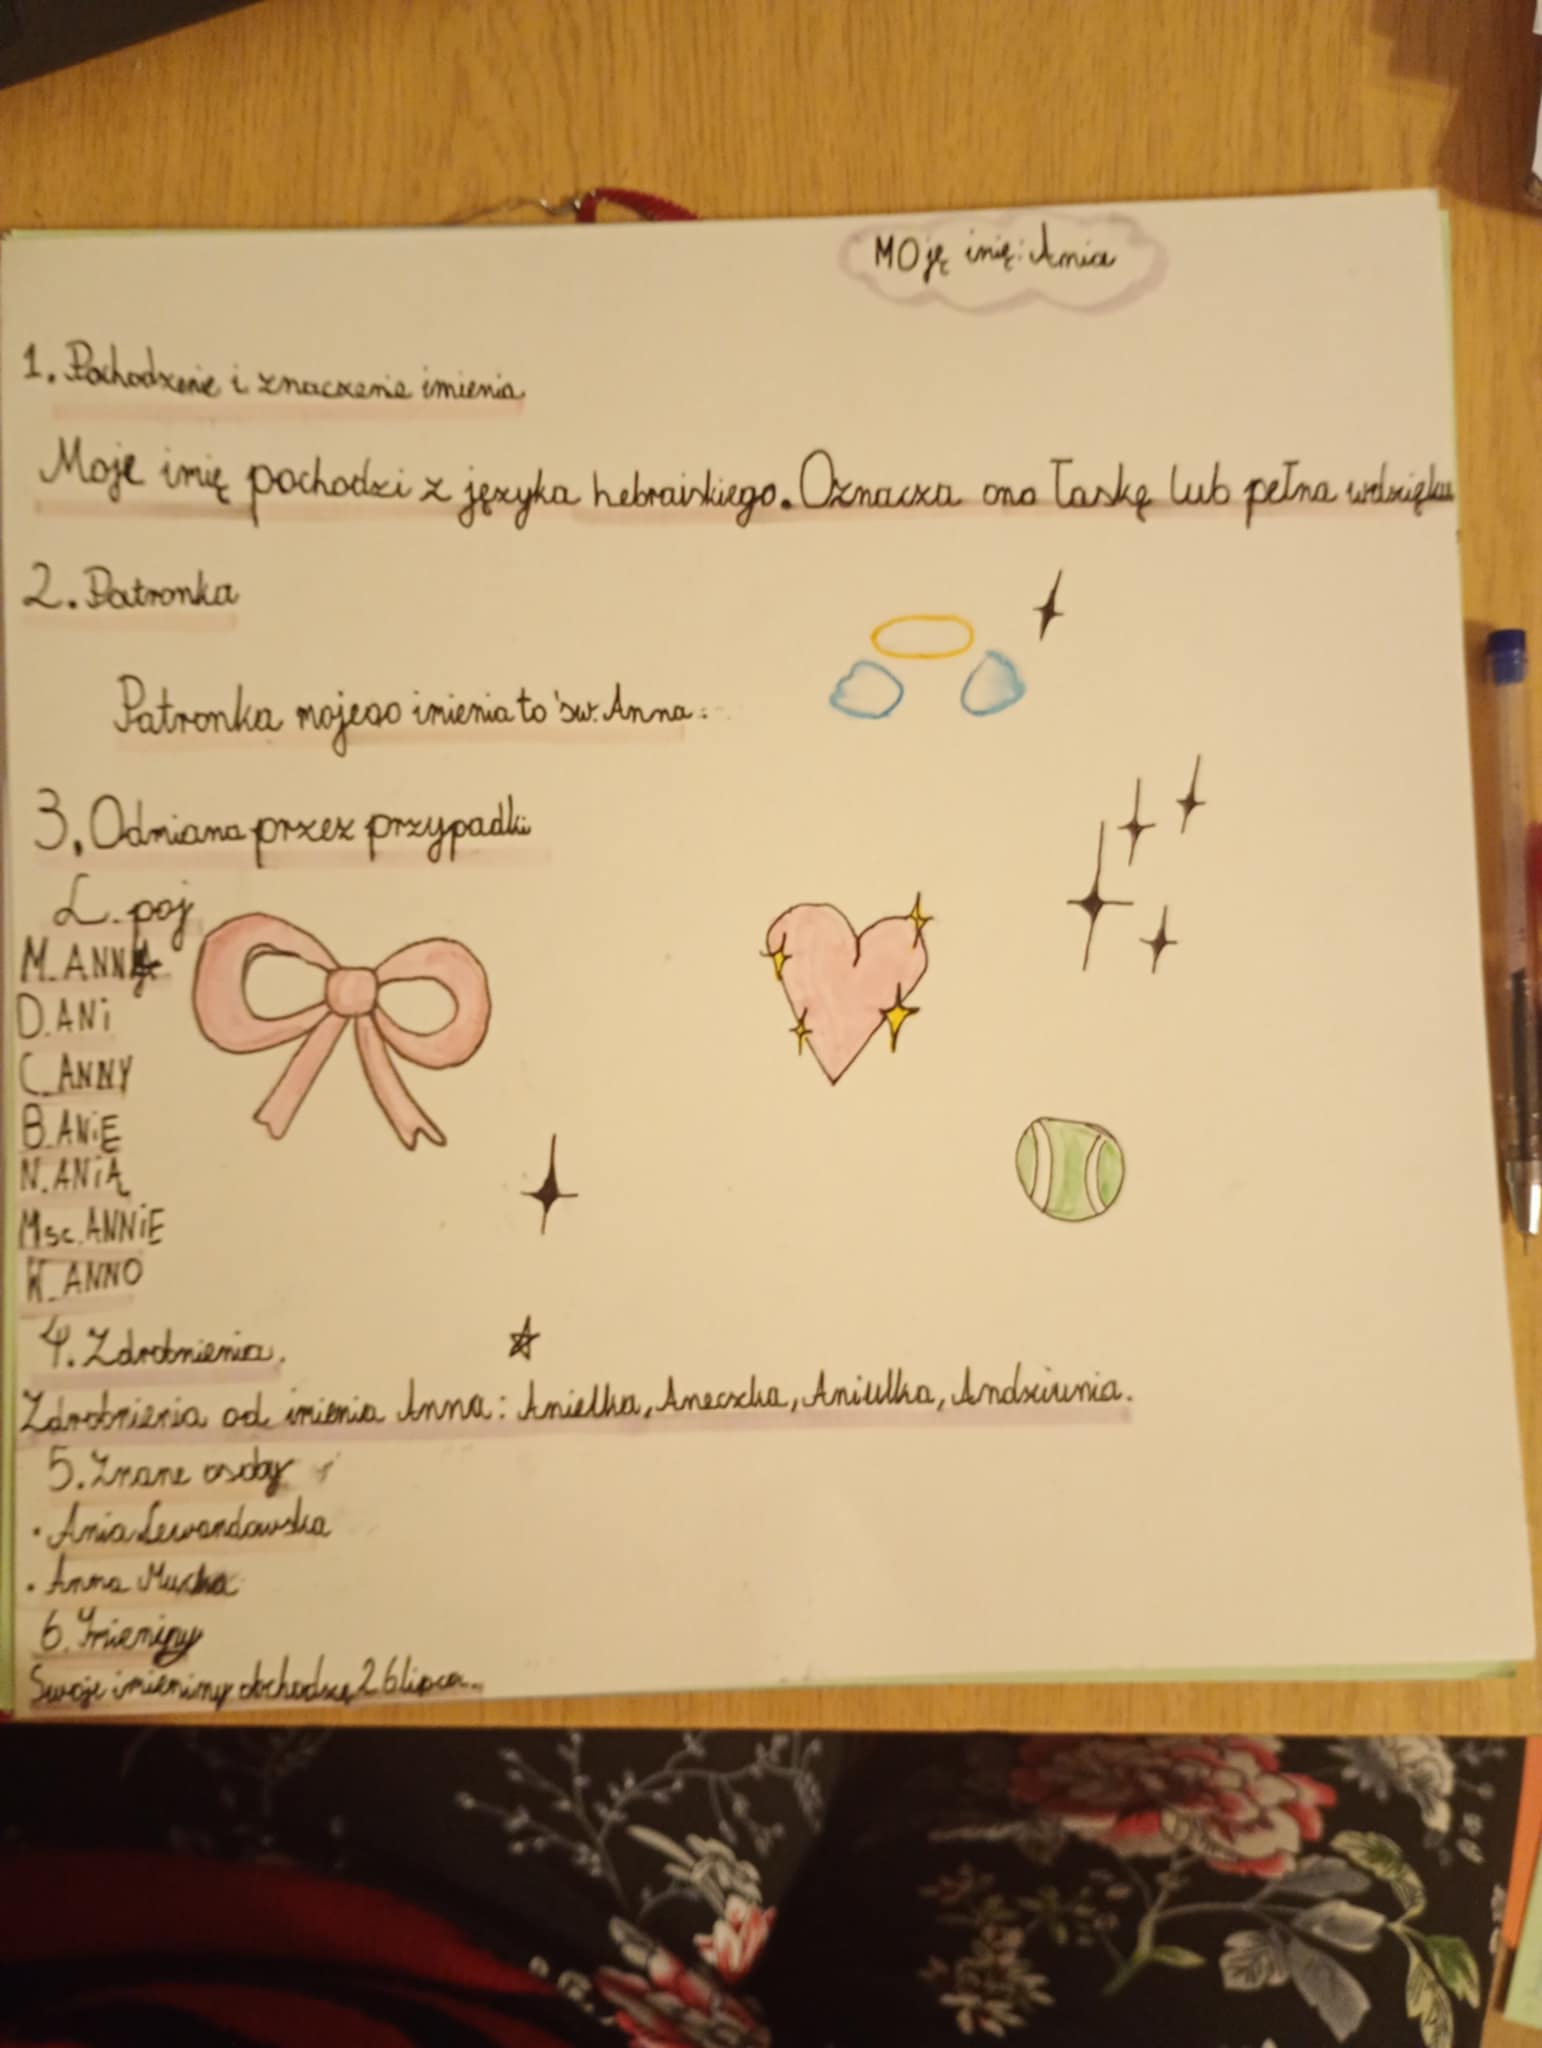 MOję imię: Ania
1. Pochodzenie i znaczenie imienia
Moje imię pochodzi z języka hebraiskiego. Oznacza ono łaskę lub pełna wdzięku
2. Patronka
Patronka mojego imienia to św. Anna.
3. Odmiana przez przypadki
L. poj
M. ANNA
D. ANi
C. ANNY
B. ANiĘ
N. ANiĄ
Msc. ANNiE
W. ANNO
4. Zdrobnienia.
Zdrobnienia od imienia Anna: Anielka, Aneczka, Aniulka, Andziunia.
5. Znane osoby
• Ania Lewandowska
• Anna Mucha
6. Imieniny
Swoje imieniny obchodzę 26 lipca.